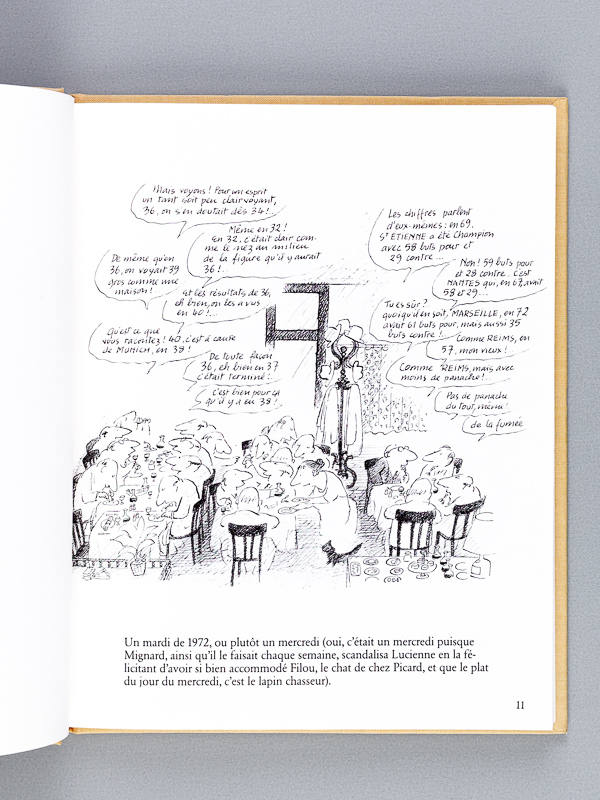 Mais voyons! Pour un esprit
un tant soit peu clairvoyant,
36, on s'en doutait dès 34!..
Même en 32!
En 32, c'était clair com-
me le nez au milieu
de la figure qu'il y aurait
36!..
De même qu'en
36, on voyait 39
gros comme une
maison!
Et les résultats de 36,
eh bien, on les a vus
en 40!...
Qu'est ce que
vous racontez! 40, c'est à cause
de MUNICH, en 38!
De toute façon
36, eh bien en 37
c'était terminé!
C'est bien pour ça
qu'il y a eu 38!
Les chiffres parlent
d'eux-mêmes: en 69,
St ETIENNE a été Champion
avec 58 buts pour et
29 contre...
Non! 59 buts pour
et 28 contre. C'est
NANTES qui, en 67, avait
58 et 29...
Tu es sûr?
quoiqu'il en soit, MARSEILLE, en 72
avait 61 buts pour, mais aussi 35
buts contre!
Comme REIMS, en
57, mon vieux!
Comme REIMS, mais avec
moins de panache!
Pas de panache
du tout, même!
de la fumée
Un mardi de 1972, ou plutôt un mercredi (oui, c'était un mercredi puisque
Mignard, ainsi qu'il le faisait chaque semaine, scandalisa Lucienne en la fé-
licitant d'avoir si bien accommodé Filou, le chat de chez Picard, et que le plat
du jour du mercredi, c'est le lapin chasseur).
11